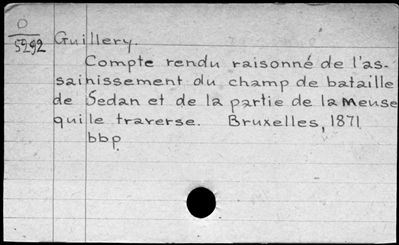 O
5292 Guillery.
Compte rendu raisonné de l'as-
sainissement du champ de bataille
de Sedan et de la partie de la Meuse
qui le traverse. Bruxelles, 1871
bbp